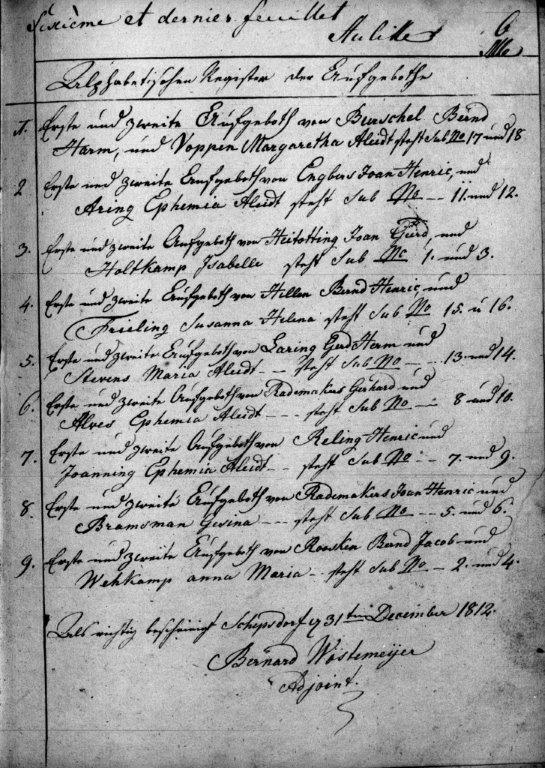 Sixième et dernier feuillet
6
Alphabetischen Register der Aufgebothe
1. Erste und zweite Aufgeboth von Burschel Bernd
Harm, und Voppen Margaretha Aleidt steht Sub No 17 und 18
2 Erste und zweite Aufgeboth von Engbers Joan Henric, und
Aring Ephemia Aleidt steht Sub No -- 11. und 12.
3. Erste und zweite Aufgeboth von Heitotting Joan Gerd, und
Holtkamp Isabelle steht Sub No 1. und 3.
4. Erste und zweite Aufgeboth von Hillen Bernd Henric, und
Frieling Susanna Helena steht Sub No 15. u 16.
5. Erste und zweite Aufgeboth von Laring Gerd Herm und
Stevens Maria Aleidt -- steht Sub No -- 13. und 14.
6. Erste und zweite Aufgeboth von Rademakers Gerhard und
Alves Ephemia Aleidt --- steht Sub No -- 8 und 10.
7. Erste und zweite Aufgeboth von Reling Henric und
Joanning Ephemia Aleidt -- steht Sub No -- 7. und 9.
8. Erste und zweite Aufgeboth von Rademakers Joan Henric und
Bramsman Gesina --- steht Sub No -- 5. und 6.
9. Erste und zweite Aufgeboth von Roosken Bernd Jacob und
Wehkamp anna Maria -- steht Sub No -- 2. und 4.
Als richtig bescheinigt Schepsdorf 31ten December 1812.
Bernard Wöstemeijer
Adjoint.